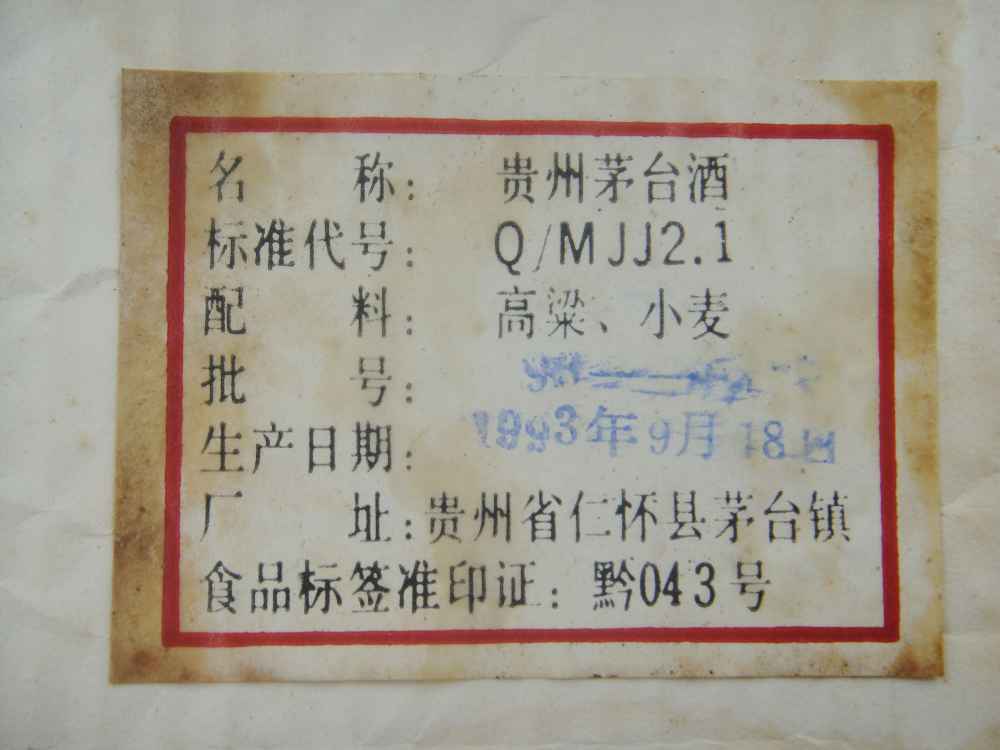 名 称: 贵州茅台酒
标准代号: Q/MJJ2.1
配 料: 高粱、小麦
批 号:
生产日期: 1993年9月18日
厂 址: 贵州省仁怀县茅台镇
食品标签准印证: 黔043号